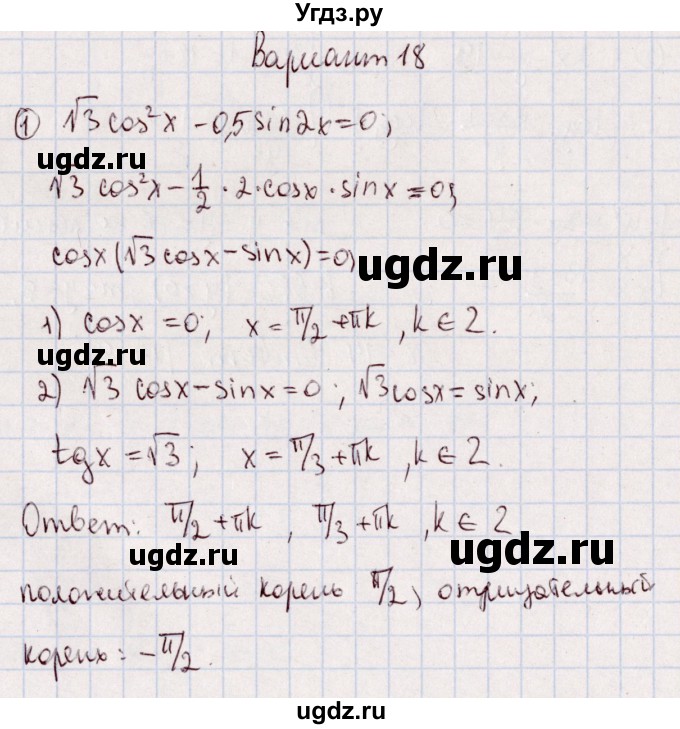 Угдз.ру
Вариант 18
① √3 cos²x - 0,5 sin2x = 0;
ugdz.ru
√3 cos²x - 1/2 · 2 · cosx · sinx = 0;
cosx (√3 cosx - sinx) = 0;
ugdz.ru
1) cosx = 0; x = π/2 + πk, k ∈ Z.
ugdz.ru
2) √3 cosx - sinx = 0; √3 cosx = sinx;
tgx = √3; x = π/3 + πk, k ∈ Z.
Ответ: π/2 + πk, π/3 + πk, k ∈ Z
ugdz.ru ugdz.ru
положительный корень π/2, отрицательный
корень: -π/2.
ugdz.ru
ugdz.ru